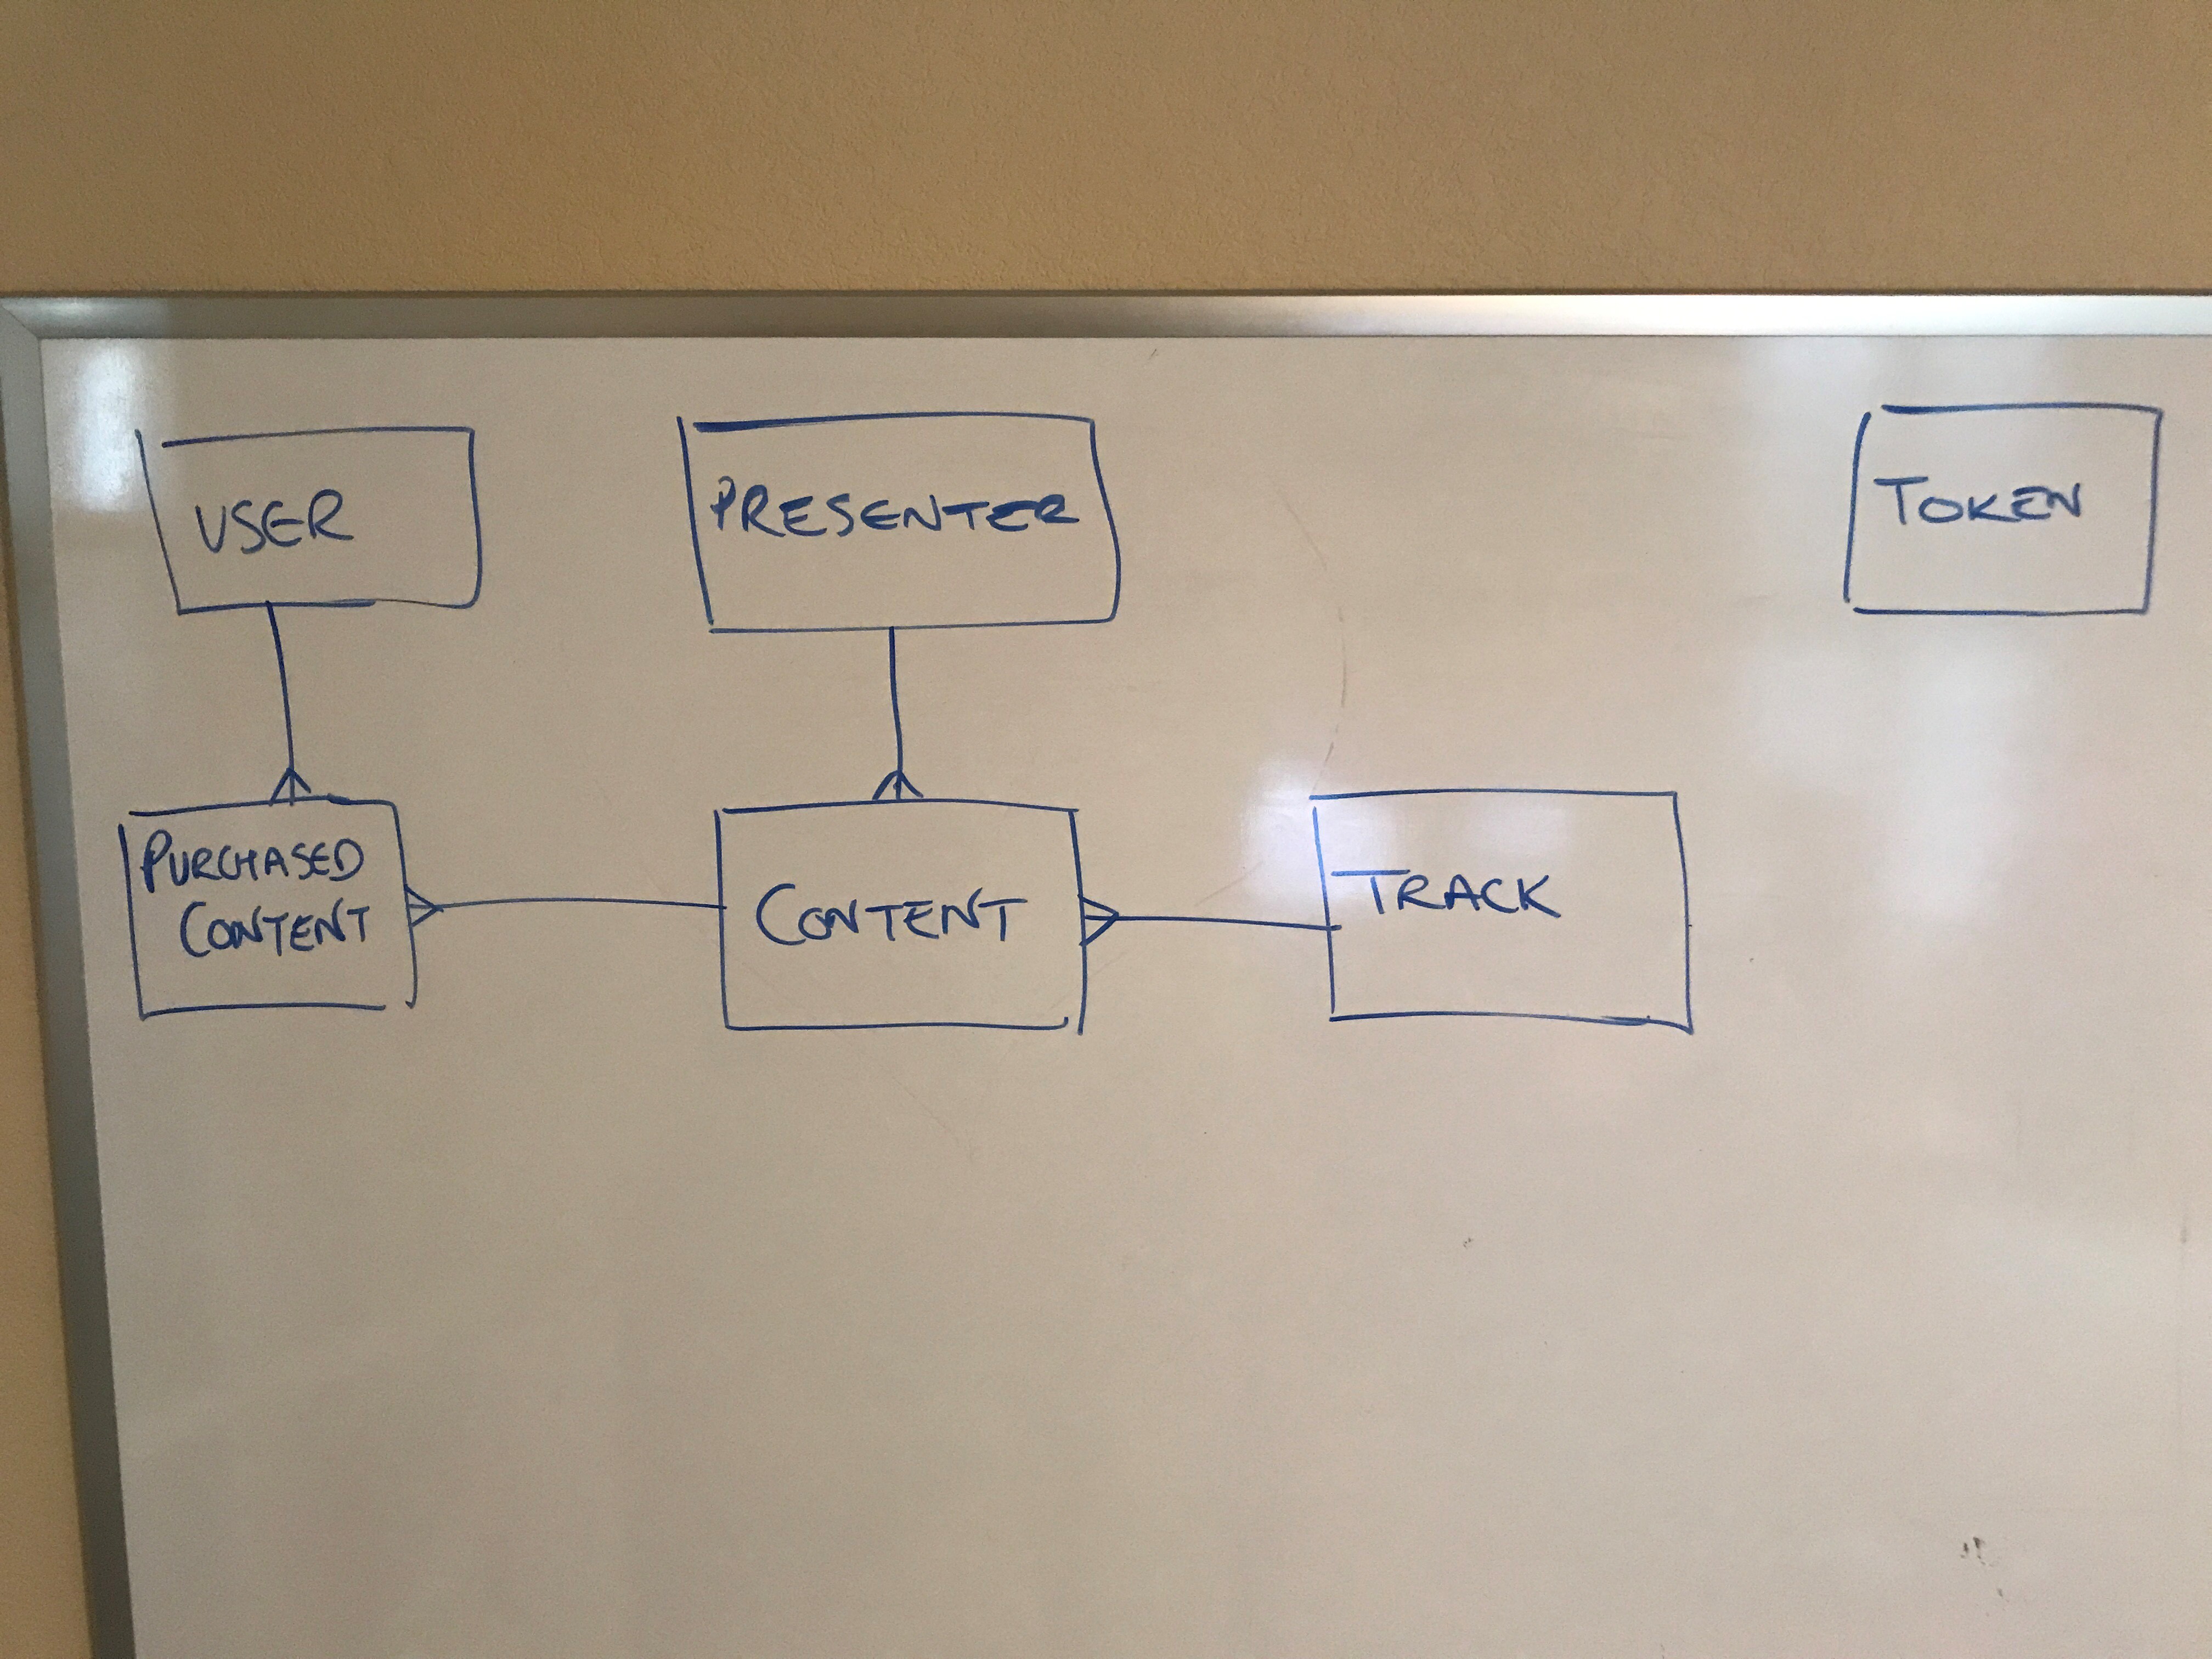 USER
PRESENTER
TOKEN
PURCHASED
CONTENT
CONTENT
TRACK